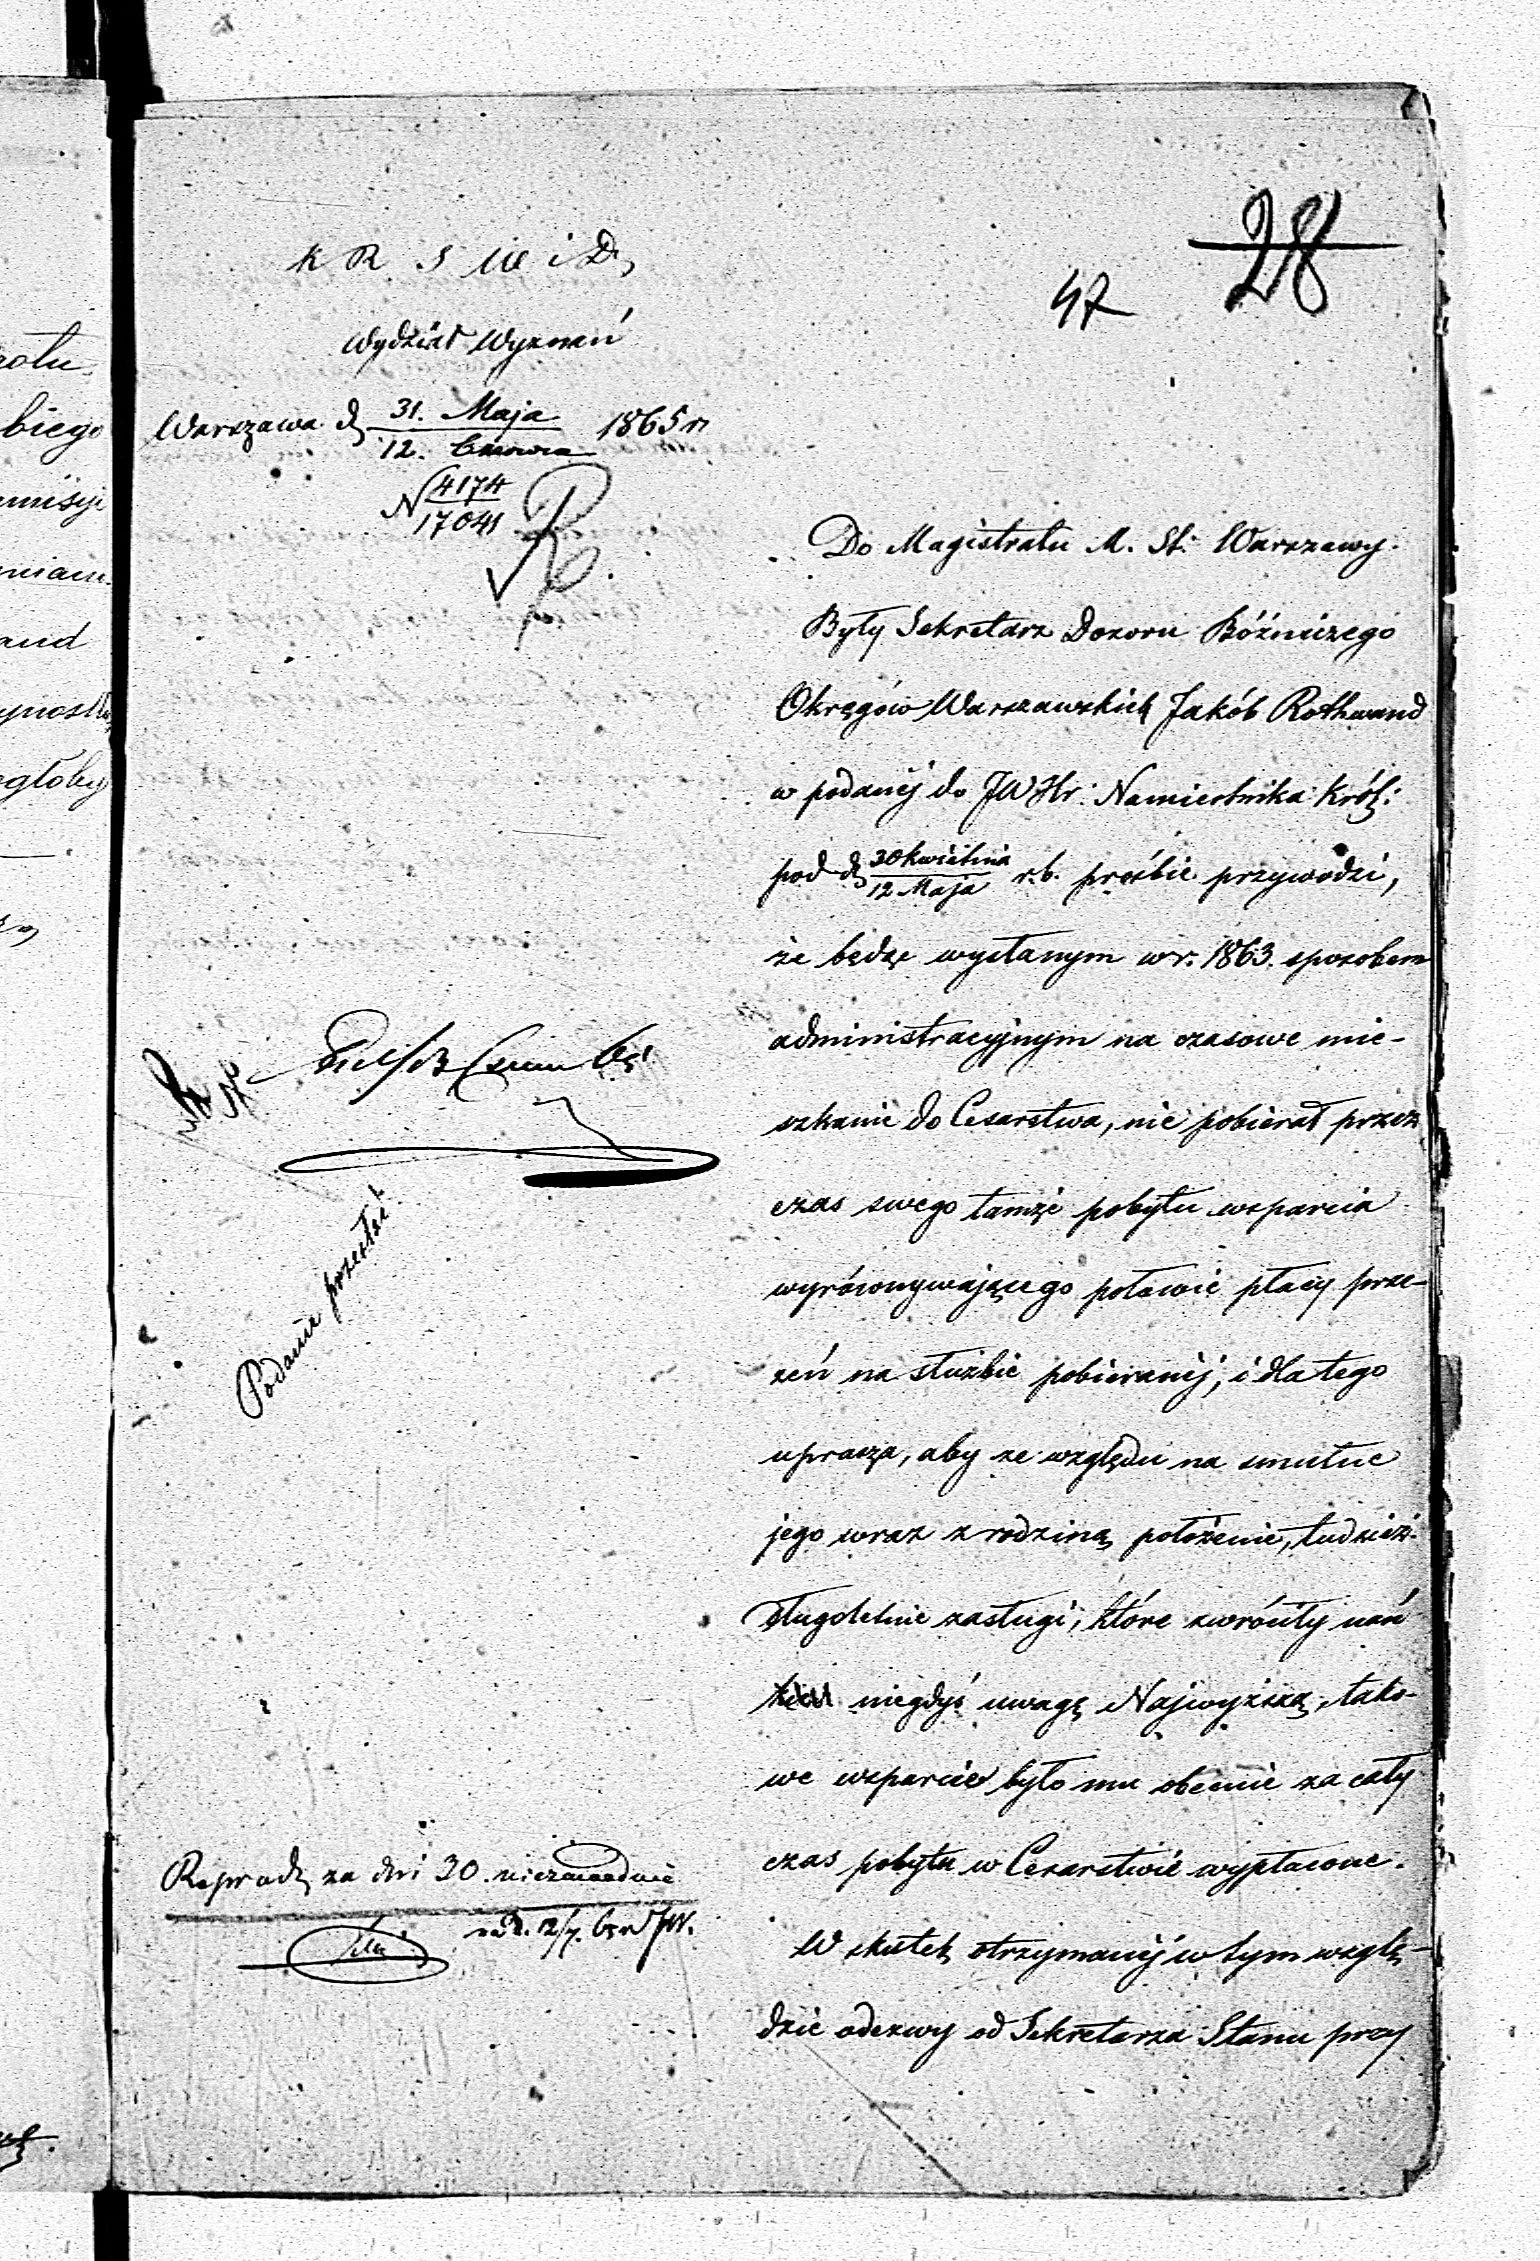 28
47
K R S W i D,
Wydział Wyznań
Warszawa d. 31. Maja / 12. Czerwca 1865 r.
N 4174 / 17041
Do Magistratu M. St: Warszawy.
Były Sekretarz Dozoru Bóżniczego
Okręgów Warszawskich Jakób Rothwand
w podanéj do JW Hr: Namiestnika Król:
pod d. 30 Kwietnia / 12 Maja r.b. prośbie przywodzi,
że będąc wysłanym w r. 1863. sposobem
administracyjnym na czasowe mie-
szkanie do Cesarstwa, nie pobierał przez
czas swego tamże pobytu wsparcia
wyrównywającego połowie płacy prze-
zeń na służbie pobieranéj, i dla tego
uprasza, aby ze względu na smutne
jego wraz z rodziną położenie, tudzież
długoletnie zasługi, które zwróciły nań
niegdyś uwagę Najwyższą, tako-
we wsparcie było mu obecnie za cały
czas pobytu w Cesarstwie wypłacone.
W skutek otrzymanéj w tym wzglę-
dzie odezwy od Sekretarza Stanu przy
Podanie przesłać.
Reprod. za dni 30. niezawodnie